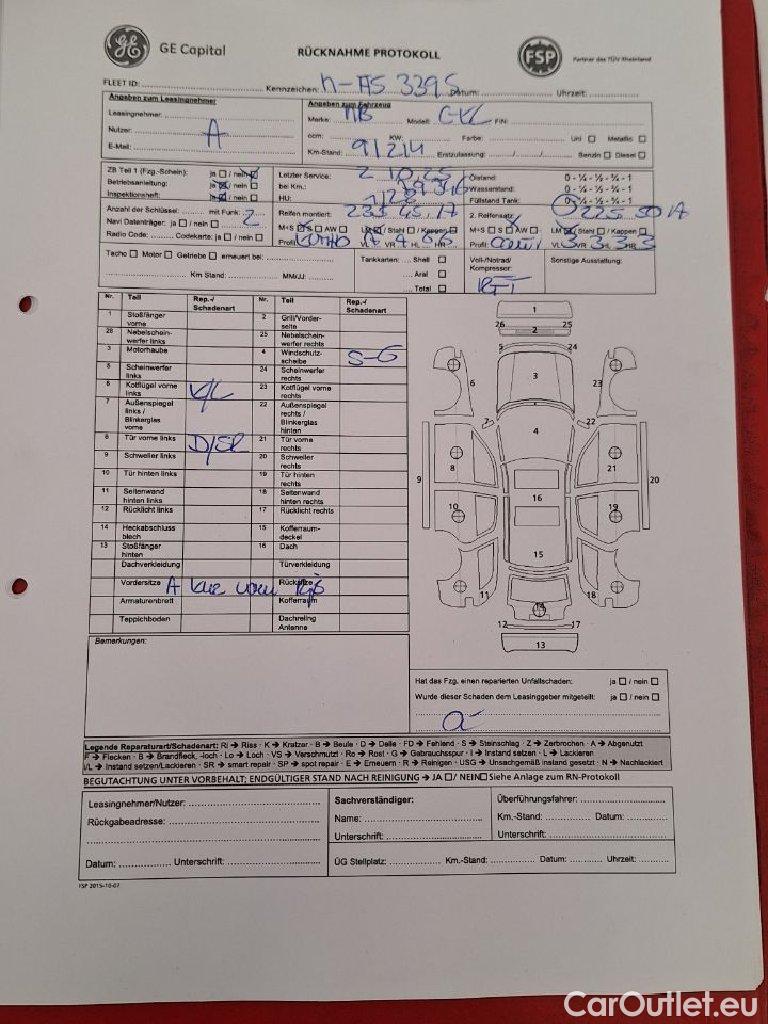 GE Capital
RÜCKNAHME PROTOKOLL
FSP
Partner des TÜV Rheinland
FLEET ID: Kennzeichen: Datum: Uhrzeit:
Angaben zum Leasingnehmer
Leasingnehmer:
Nutzer: A
E-Mail:
Angaben zum Fahrzeug
Marke: MB Modell: FIN:
ccm: KW: Farbe: Uni Metallic
Km-Stand: 91214 Erstzulassung: Benzin Diesel
ZB Teil 1 (Fzg.-Schein): ja / nein
Betriebsanleitung: ja / nein
Inspektionsheft: ja / nein
Letzter Service: 2.10.25
bei Km.:
HU:
Ölstand: 0 - ¼ - ½ - ¾ - 1
Wasserstand: 0 - ¼ - ½ - ¾ - 1
Füllstand Tank: 0 - ¼ - ½ - ¾ - 1
Anzahl der Schlüssel: mit Funk: 2
Navi Datenträger: ja / nein
Radio Code: Codekarte: ja / nein
Reifen montiert: 235 45 17
M+S S AW LM / Stahl / Kappen
Profil: VL VR HL HR
2. Reifensatz: 225 50 17
M+S S AW LM / Stahl / Kappen
Profil: VL 3 VR 3 HL 3 HR 3
Tacho Motor Getriebe erneuert bei:
Km Stand: MM/JJ:
Tankkarten: Shell
Aral
Total
Voll-/Notrad/
Kompressor:
RFT
Sonstige Ausstattung:
Nr. Teil Rep.-/ Schadenart Nr. Teil Rep.-/ Schadenart
1 Stoßfänger vorne 2 Grill/Vorderseite
26 Nebelscheinwerfer links 25 Nebelscheinwerfer rechts
3 Motorhaube 4 Windschutzscheibe S-G
5 Scheinwerfer links 24 Scheinwerfer rechts
6 Kotflügel vorne links K/L 23 Kotflügel vorne rechts
7 Außenspiegel links / Blinkerglas vorne 22 Außenspiegel rechts / Blinkerglas hinten
8 Tür vorne links D/SR 21 Tür vorne rechts
9 Schweller links 20 Schweller rechts
10 Tür hinten links 19 Tür hinten rechts
11 Seitenwand hinten links 18 Seitenwand hinten rechts
12 Rücklicht links 17 Rücklicht rechts
14 Heckabschluss blech 15 Kofferraumdeckel
13 Stoßfänger hinten 16 Dach
Dachverkleidung Türverkleidung
Vordersitze A Rücksitze
Armaturenbrett Kofferraum
Teppichboden Dachreling Antenne
Bemerkungen:
Hat das Fzg. einen reparierten Unfallschaden: ja / nein
Wurde dieser Schaden dem Leasinggeber mitgeteilt: ja / nein
Legende Reparaturart/Schadenart: RI → Riss · K → Kratzer · B → Beule · D → Delle · FD → Fehlend · S → Steinschlag · Z → Zerbrochen · A → Abgenutzt
F → Flecken · B → Brandfleck, -loch · Lo → Loch · VS → Verschmutzt · Ro → Rost · G → Gebrauchsspur · I → Instand setzen · L → Lackieren
I/L → Instand setzen/Lackieren · SR → smart repair · SP → spot repair · E → Erneuern · R → Reinigen · USG → Unsachgemäß instand gesetzt · N → Nachlackiert
BEGUTACHTUNG UNTER VORBEHALT; ENDGÜLTIGER STAND NACH REINIGUNG → JA / NEIN Siehe Anlage zum RN-Protokoll
Leasingnehmer/Nutzer:
Rückgabeadresse:
Datum: Unterschrift:
Sachverständiger:
Name:
Unterschrift:
Überführungsfahrer:
Km.-Stand: Datum:
Unterschrift:
ÜG Stellplatz: Km.-Stand: Datum: Uhrzeit:
FSP 2015-10-07
CarOutlet.eu